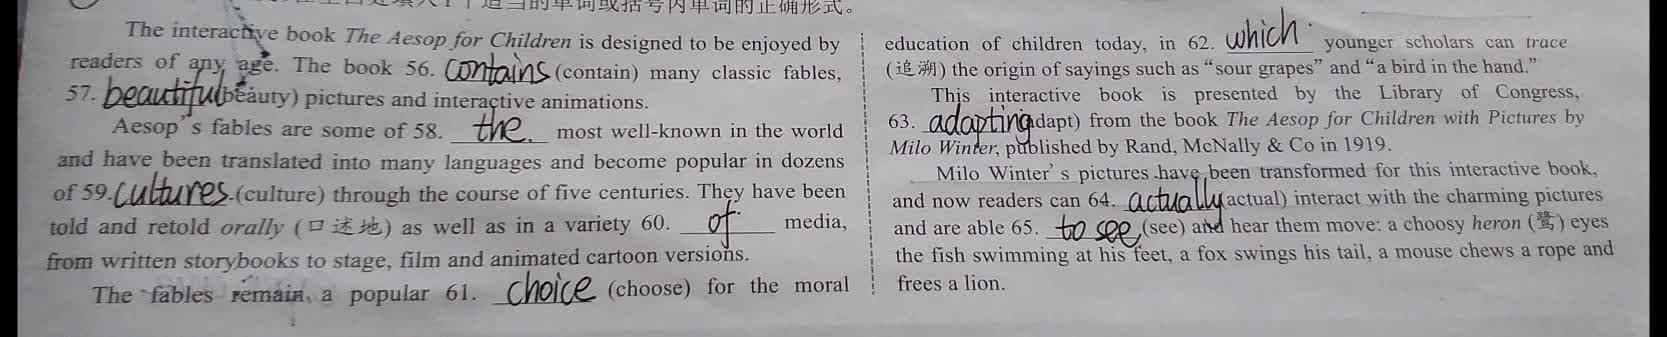 入1个适当的单词或括号内单词的正确形式。
The interactive book The Aesop for Children is designed to be enjoyed by
readers of any age. The book 56. contains (contain) many classic fables,
57. beautiful (beauty) pictures and interactive animations.
Aesop's fables are some of 58. the most well-known in the world
and have been translated into many languages and become popular in dozens
of 59. cultures (culture) through the course of five centuries. They have been
told and retold orally (口述地) as well as in a variety 60. of media,
from written storybooks to stage, film and animated cartoon versions.
The fables remain a popular 61. choice (choose) for the moral
education of children today, in 62. which younger scholars can trace
(追溯) the origin of sayings such as “sour grapes” and “a bird in the hand.”
This interactive book is presented by the Library of Congress,
63. adapting (adapt) from the book The Aesop for Children with Pictures by
Milo Winter, published by Rand, McNally & Co in 1919.
Milo Winter's pictures have been transformed for this interactive book,
and now readers can 64. actually (actual) interact with the charming pictures
and are able 65. to see (see) and hear them move: a choosy heron (鹭) eyes
the fish swimming at his feet, a fox swings his tail, a mouse chews a rope and
frees a lion.